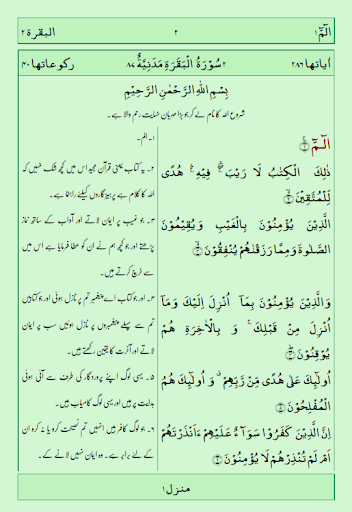 البقرة ۲ ۲ الٓمّٓ ۱
اٰیاتها ۲۸۶ ۲ سُوۡرَۃُ الۡبَقَرَۃِ مَدَنِیَّۃٌ ۸۷ رکوعاتها ۴۰
بِسۡمِ اللّٰہِ الرَّحۡمٰنِ الرَّحِیۡمِ
شروع اللہ کا نام لے کر جو بڑا مہربان نہایت رحم والا ہے۔
الٓـمّٓ ۚ﴿۱﴾
ذٰلِکَ الۡکِتٰبُ لَا رَیۡبَ ۚۖۛ فِیۡہِ ۚۛ ہُدًی
لِّلۡمُتَّقِیۡنَ ۙ﴿۲﴾
الَّذِیۡنَ یُؤۡمِنُوۡنَ بِالۡغَیۡبِ وَ یُقِیۡمُوۡنَ
الصَّلٰوۃَ وَ مِمَّا رَزَقۡنٰہُمۡ یُنۡفِقُوۡنَ ۙ﴿۳﴾
وَ الَّذِیۡنَ یُؤۡمِنُوۡنَ بِمَاۤ اُنۡزِلَ اِلَیۡکَ وَ مَاۤ
اُنۡزِلَ مِنۡ قَبۡلِکَ ۚ وَ بِالۡاٰخِرَۃِ ہُمۡ
یُوۡقِنُوۡنَ ؕ﴿۴﴾
اُولٰٓئِکَ عَلٰی ہُدًی مِّنۡ رَّبِّہِمۡ ٭ وَ اُولٰٓئِکَ ہُمُ
الۡمُفۡلِحُوۡنَ ﴿۵﴾
اِنَّ الَّذِیۡنَ کَفَرُوۡا سَوَآءٌ عَلَیۡہِمۡ ءَاَنۡذَرۡتَہُمۡ
اَمۡ لَمۡ تُنۡذِرۡہُمۡ لَا یُؤۡمِنُوۡنَ ﴿۶﴾
۱۔ الم۔
۲۔ یہ کتاب یعنی قرآن مجید اس میں کچھ شک نہیں کہ
اللہ کا کلام ہے پرہیزگاروں کیلئے راہنما ہے۔
۳۔ جو غیب پر ایمان لاتے اور آداب کے ساتھ نماز
پڑھتے اور جو کچھ ہم نے ان کو عطا فرمایا ہے اس میں
سے خرچ کرتے ہیں۔
۴۔ اور جو کتاب اے پیغمبر تم پر نازل ہوئی اور جو کتابیں
تم سے پہلے پیغمبروں پر نازل ہوئیں سب پر ایمان
لاتے اور آخرت کا یقین رکھتے ہیں۔
۵۔ یہی لوگ اپنے پروردگار کی طرف سے آئی ہوئی
ہدایت پر ہیں اور یہی لوگ کامیاب ہیں۔
۶۔ جو لوگ کافر ہیں انہیں تم نصیحت کرو یا نہ کرو ان
کے لئے برابر ہے۔ وہ ایمان نہیں لانے کے۔
منزل ۱